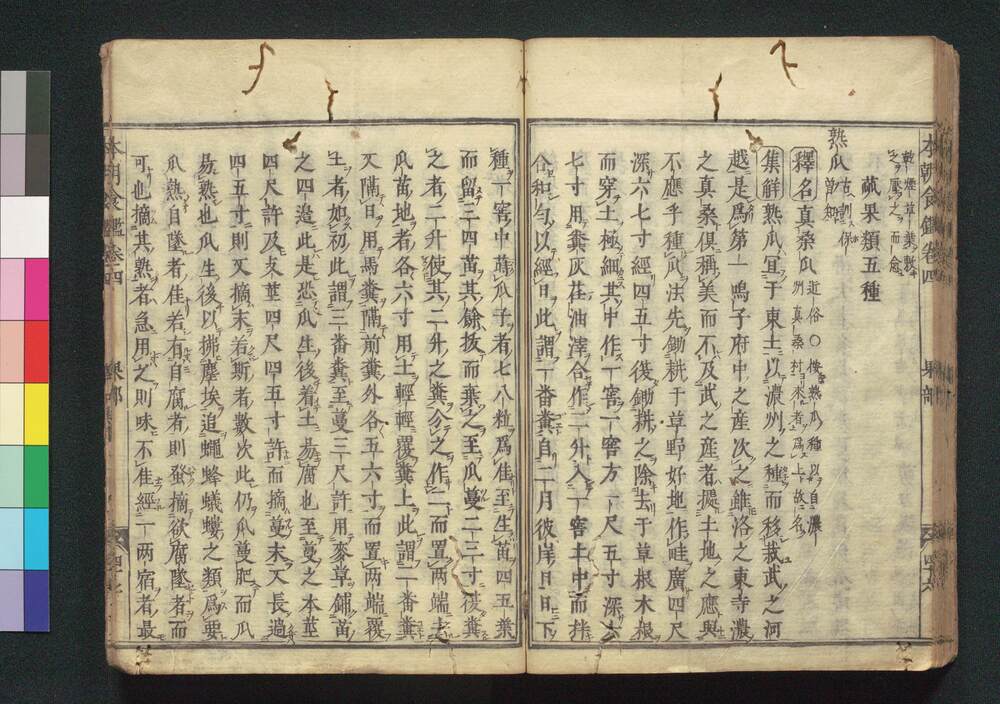 乾煙草葉數
之壓之而愈
蓏果類五種
熟瓜 古訓保曾知
釋名真桑瓜 近俗〇按熟瓜種以自濃州真桑村來者爲上故名
集觧熟瓜冝于東土以濃州之種而移栽武之河
越是爲第一鳴子府中之產次之雖洛之東寺濃
之真桑俱稱美而不及武之產者據土地之應與
不應乎種瓜法先鋤耕于草野好地作畦廣四尺
深六七寸經四五寸後鋤耕之除去于草根木根
而穿土極細其中作一窖一窖方一尺五寸深六
七寸用糞灰荏油滓合作二升入一窖土中而拌
合和勻以經日此謂一番糞自二月彼岸日日下
種一窖中蒔瓜子者七八粒爲佳至生苗四五葉
而留三四苗其餘拔而棄之至瓜蔓二三寸後糞
之者二升使其二升之糞分之作二而置两端去
瓜苗地者各六寸用土輕輕覆糞上此謂二番糞
又隔日用馬糞隔前糞外各五六寸而置两端覆
土者如初此謂三番糞至蔓三尺許用麥草鋪苗
之四邉此是恐瓜生後着土易腐也至蔓之本莖
四尺許及支莖四尺四五寸許而摘蔓末又長過
四五寸則又摘末若斯者數次此仍瓜蔓肥而瓜
易熟也瓜生後以拂塵埃追蠅蜂蟻螻之類爲要
瓜熟自墜者佳若有自腐者則蚤摘欲腐墜者而
可也摘其熟者急用之則味不佳經一两宿者最
本朝食鑑卷四
果部
本朝食鑑卷四
果部